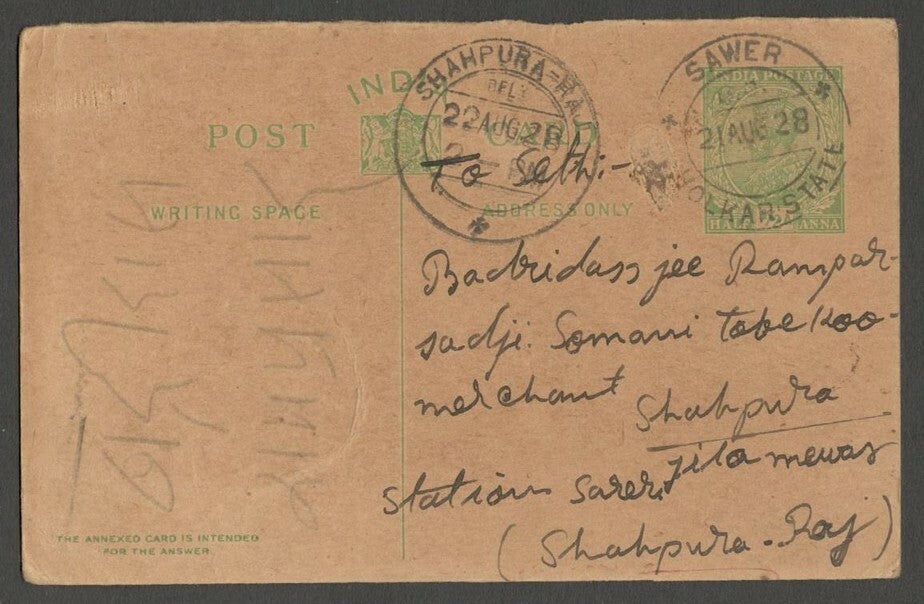 INDIA POSTAGE
HALF ANNA
SAWER
21 AUG 28
HOLKAR STATE
SHAHPURA-RAJ
22 AUG 28
POST CARD
WRITING SPACE
ADDRESS ONLY
To Seth:-
Badridass jee Rampar-
sadji. Somani tobekoo-
merchant
Shahpura
jila mewar
Station Sareri
(Shahpura-Raj)
THE ANNEXED CARD IS INTENDED
FOR THE ANSWER.